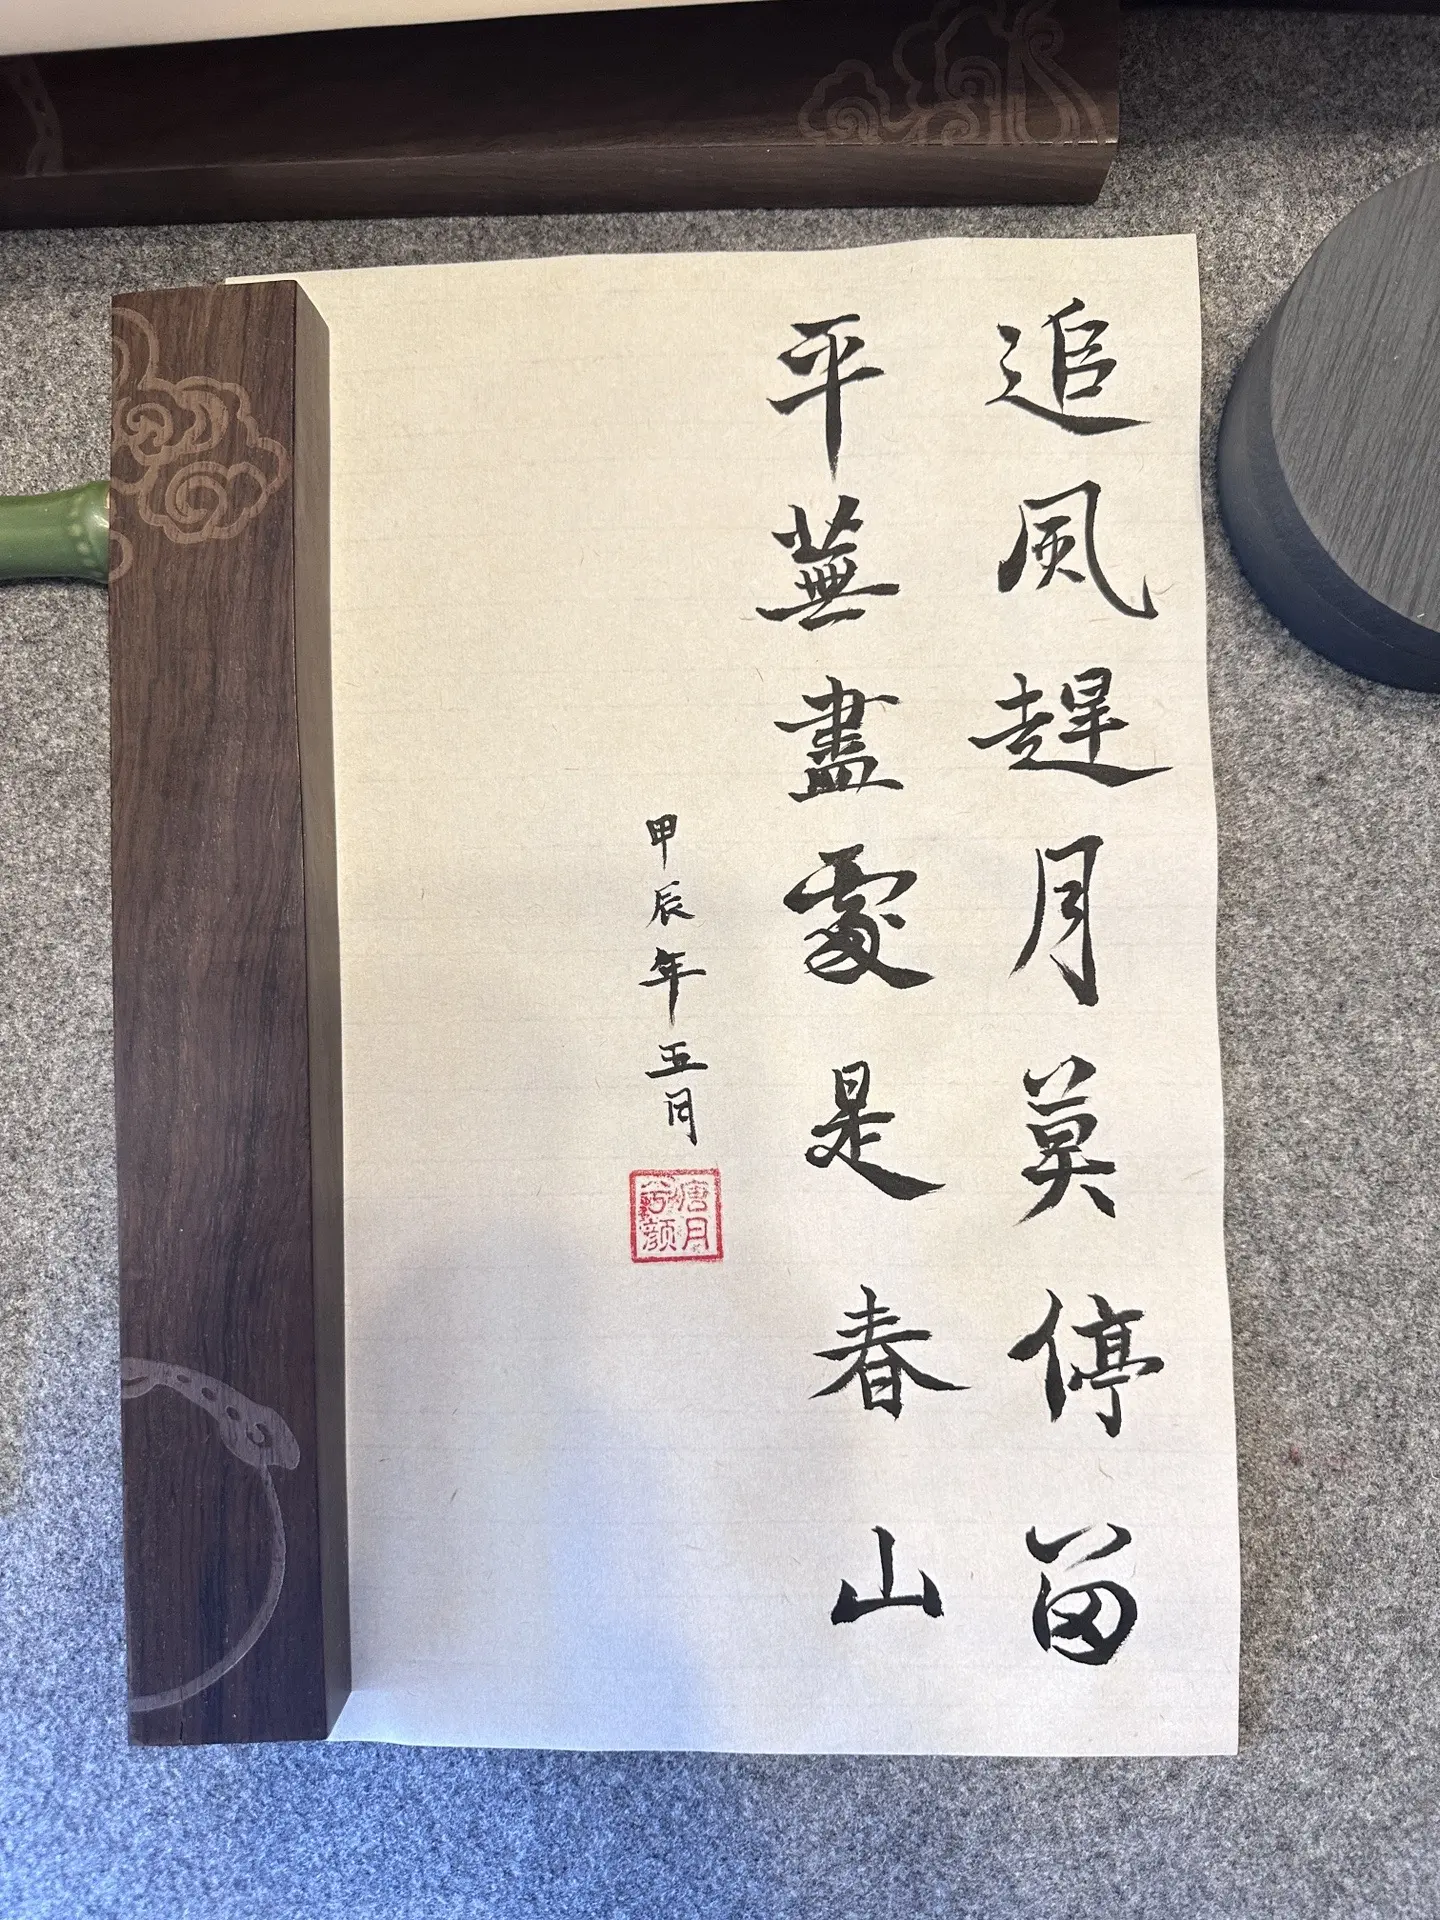 追風趕月莫停留
平蕪盡處是春山
甲辰年五月